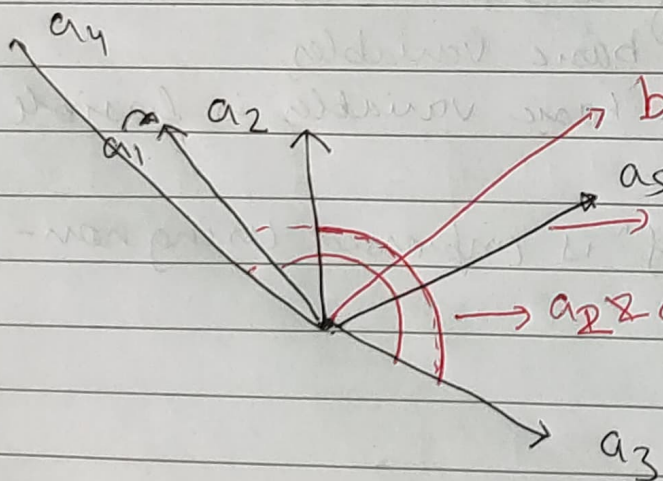 a4
a1
a2
b
a5
a2 &
a3